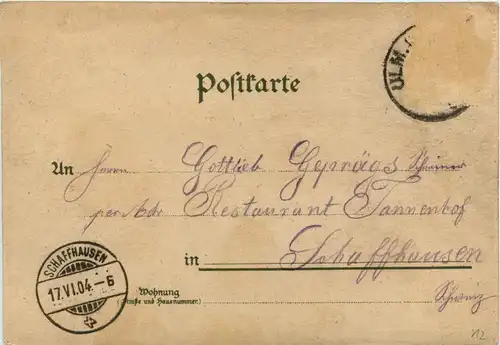 ULM.
Postkarte
An Herrn Gottlieb Geprägs
per Adr. Restaurant Tannenhof
in Schaffhausen
SCHAFFHAUSEN
17.VI.04.–6
Wohnung
(Straße und Hausnummer)
Schweiz